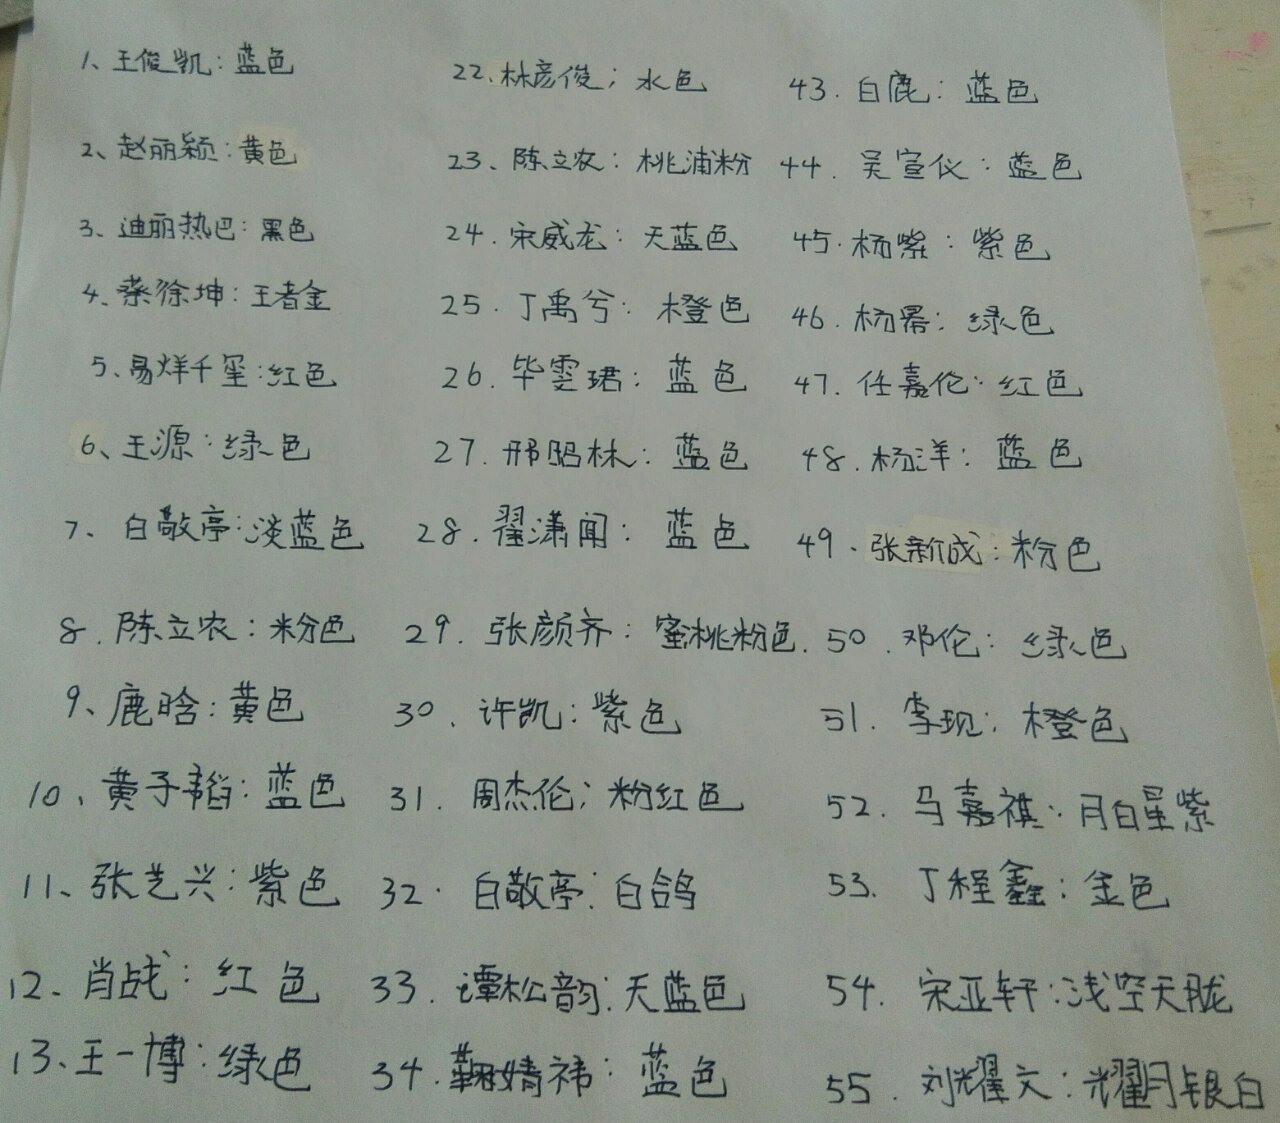 1、王俊凯：蓝色
2、赵丽颖：黄色
3、迪丽热巴：黑色
4、蔡徐坤：王者金
5、易烊千玺：红色
6、王源：绿色
7、白敬亭：淡蓝色
8．陈立农：粉色
9、鹿晗：黄色
10、黄子韬：蓝色
11、张艺兴：紫色
12、肖战：红色
13、王一博：绿色
22、林彦俊；水色
23、陈立农：桃浦粉
24．宋威龙：天蓝色
25．丁禹兮：橙色
26．毕雯珺：蓝色
27．邢昭林：蓝色
28．翟潇闻：蓝色
29．张颜齐：蜜桃粉色．
30．许凯：紫色
31．周杰伦；粉红色
32．白敬亭：白鸽
33．谭松韵：天蓝色
34．鞠婧祎：蓝色
43．白鹿：蓝色
44．吴宣仪：蓝色
45．杨紫：紫色
46．杨幂：绿色
47．任嘉伦：红色
48．杨洋：蓝色
49．张新成：粉色
50．邓伦：绿色
51．李现；橙色
52．马嘉祺：月白星紫
53．丁程鑫：金色
54．宋亚轩：浅空天胧
55．刘耀文：耀月银白